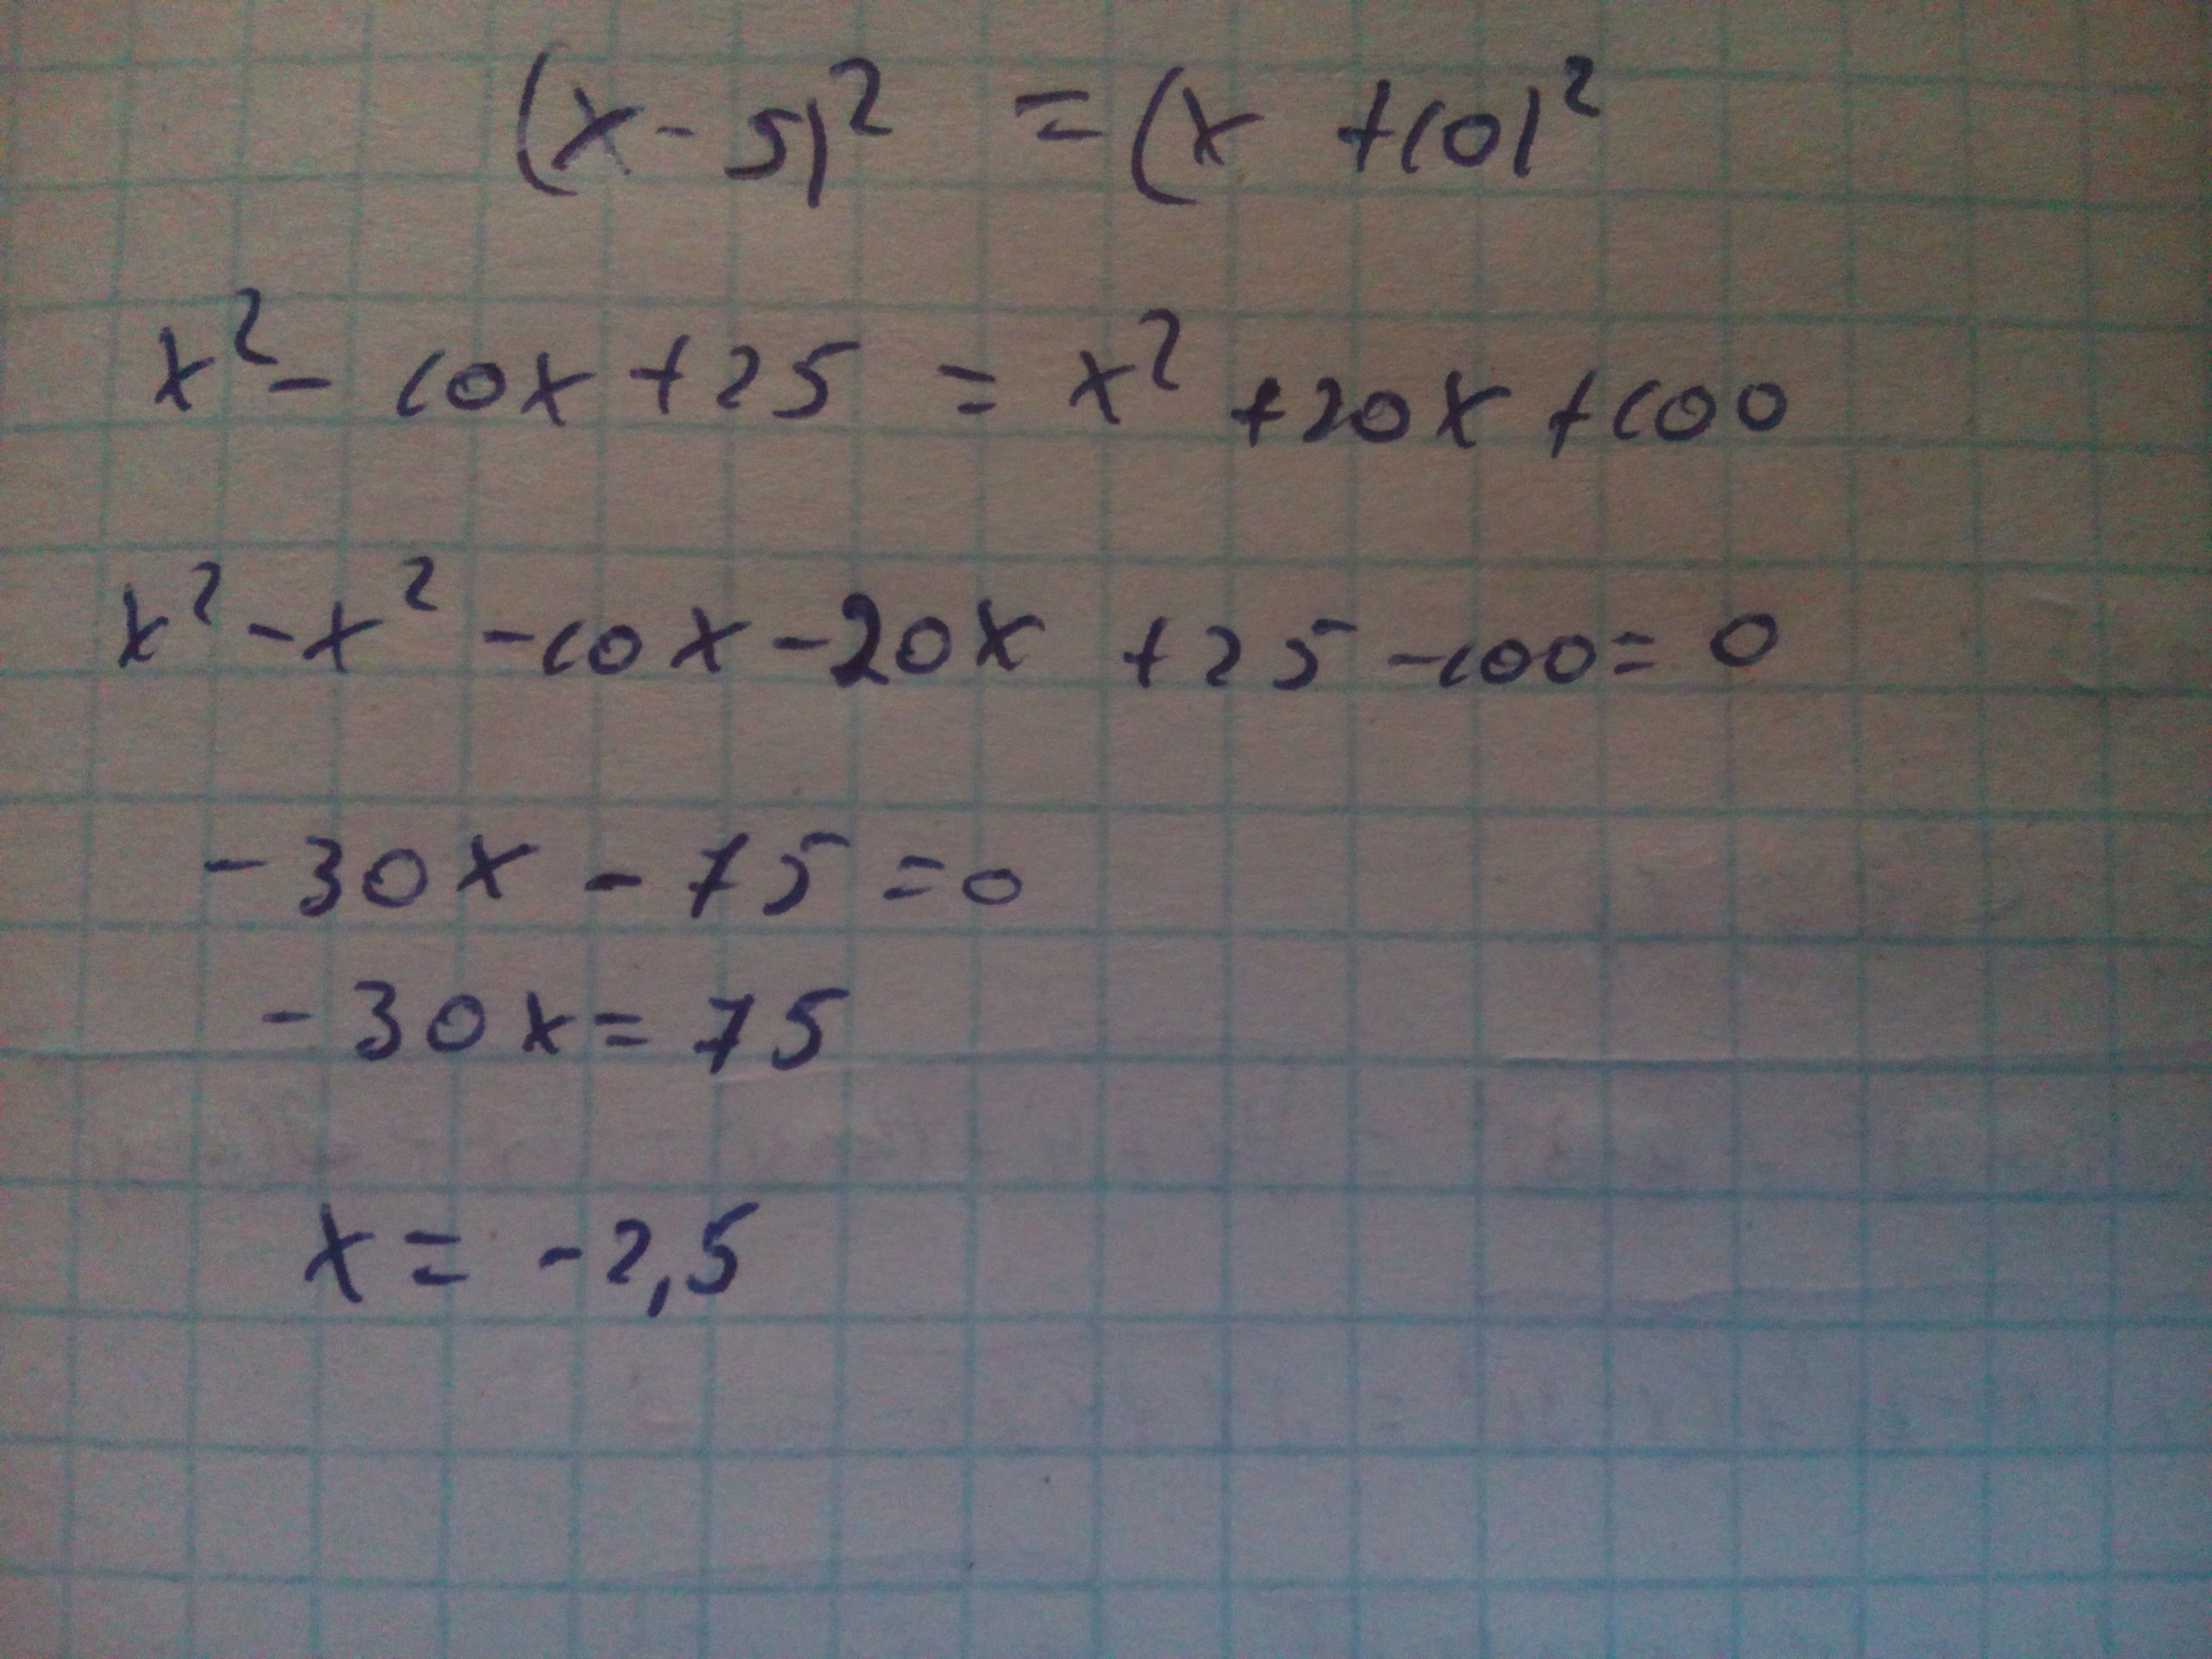 (x - 5)² = (x + 10)²
x² - 10x + 25 = x² + 20x + 100
x² - x² - 10x - 20x + 25 - 100 = 0
- 30x - 75 = 0
- 30x = 75
x = - 2,5